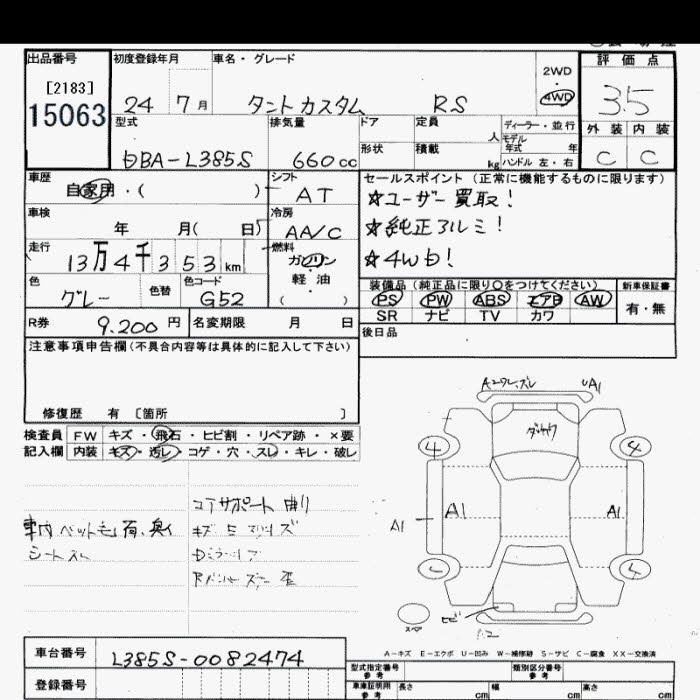 出品番号 初度登録年月 車名・グレード 2WD ・ 4WD 評価点
[2183]
15063
24 7月 タントカスタム RS 3.5
型式 排気量 ドア 定員 人 ディーラー・並行 外装 内装
モデル年式 年
DBA-L385S 660cc 形状 積載 kg ハンドル 左・右 C C
車歴 自家用・( ) シフト AT
セールスポイント(正常に機能するものに限ります)
☆ユーザー買取!
☆純正アルミ!
☆4WD!
車検 年 月( 日) 冷房 AA/C
走行 13万4千353km 燃料 ガソリン・軽油・( )
色 グレー 色替 色コード G52
装備品(純正品に限り○をつけてください) 新車保証書
PS PW ABS エアB AW 有・無
SR ナビ TV カワ
R券 9.200円 名変期限 月 日
後日品
注意事項申告欄(不具合内容等は具体的に記入して下さい)
修復歴 有 [箇所 ]
検査員記入欄 FW キズ・飛石・ヒビ割・リペア跡・×要
内装 キズ・汚レ・コゲ・穴・スレ・キレ・破レ
コアサポート曲り
車内ペット毛有、臭イ
A1 A1 A1 UA1
ヒビ
スペア
A-キズ E-エクボ U-凹み W-補修跡 S-サビ C-腐食 XX-交換済
車台番号 L385S-0082474
登録番号
型式指定番号 参考 類別区分番号 参考
車庫証明用 参考 長さ cm 幅 cm 高さ cm